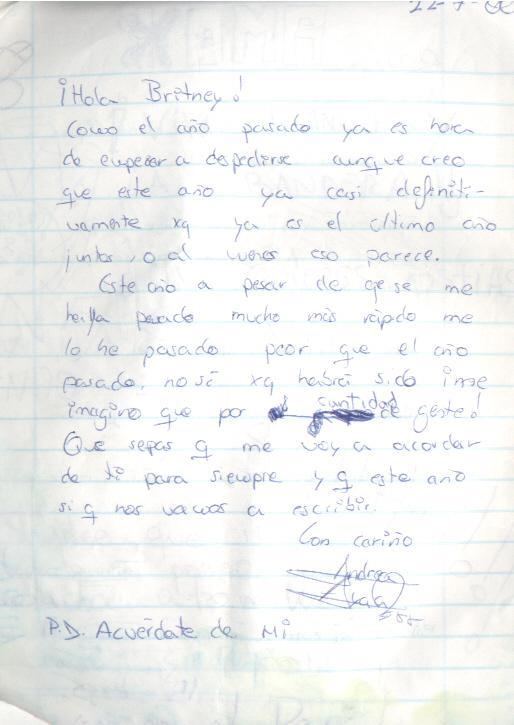 22-7-
¡Hola Britney!
Como el año pasado ya es hora
de empezar a despedirse aunque creo
que este año ya casi definiti-
vamente xq ya es el último año
juntas, o al menos eso parece.
Este año a pesar de qe se me
haya pasado mucho más rápido me
lo he pasado peor que el año
pasado, no sé xq habrá sido ime
imagino que por cantidad de gente!
Que sepas q me voy a acordar
de ti para siempre y q este año
si q nos vamos a escribir.
Con cariño
Andrea
P.D. Acuérdate de Mi